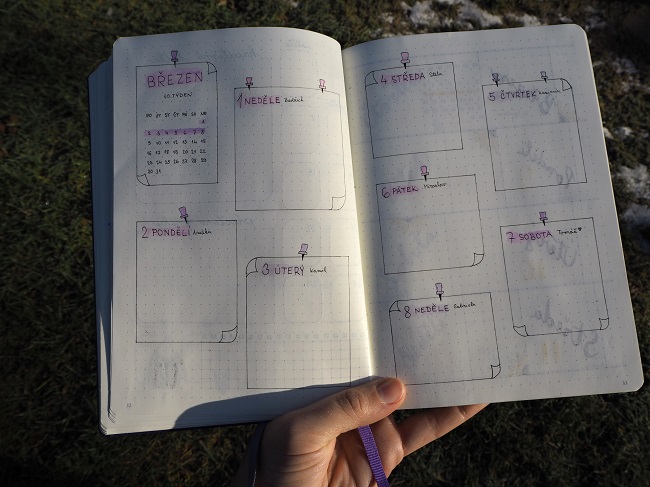 BŘEZEN
10. TÝDEN
PO ÚT ST ČT PÁ SO NE
1
2 3 4 5 6 7 8
9 10 11 12 13 14 15
16 17 18 19 20 21 22
23 24 25 26 27 28 29
30 31
1 NEDĚLE Bedřich
2 PONDĚLÍ Anežka
3 ÚTERÝ Kamil
4 STŘEDA Stela
5 ČTVRTEK Kazimír
6 PÁTEK Miroslav
7 SOBOTA Tomáš ♥
8 NEDĚLE Gabriela